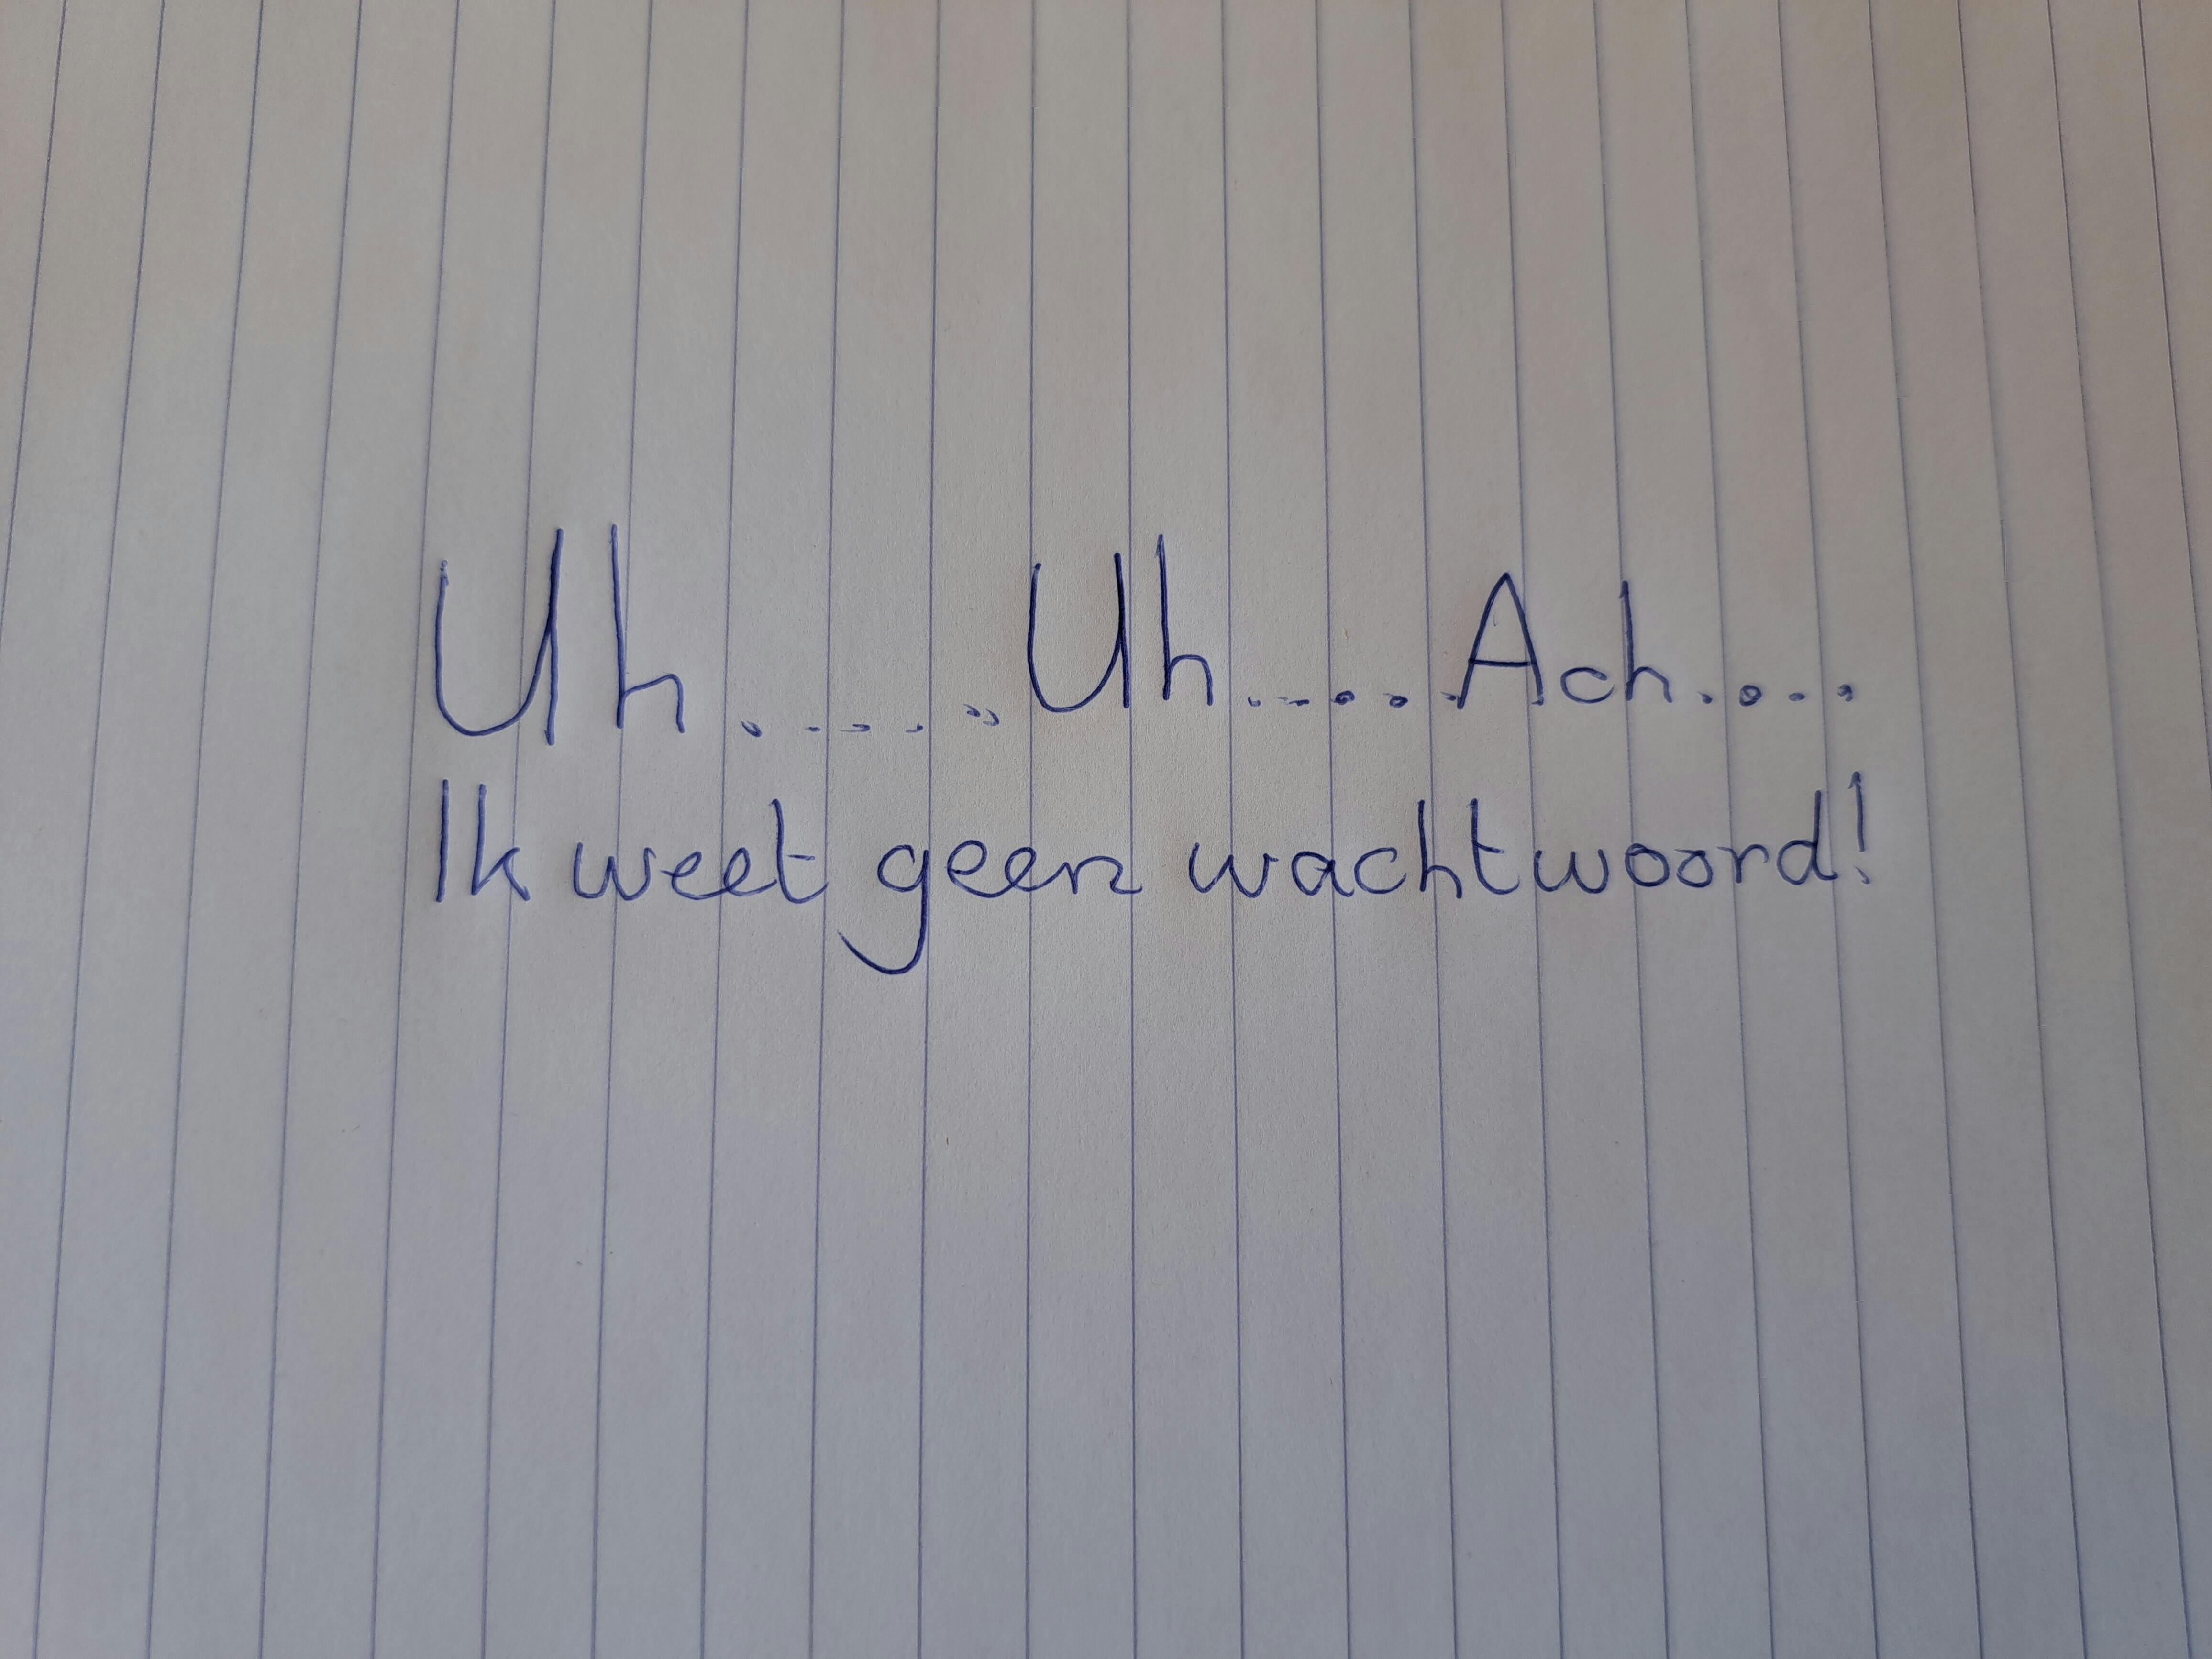 Uh...... Uh...... Ach....
Ik weet geen wachtwoord!